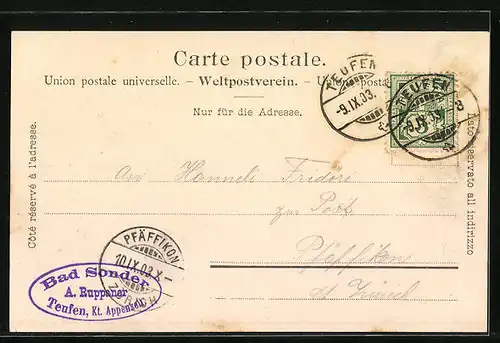 Carte postale.
Union postale universelle. – Weltpostverein. – Unione posta
Nur für die Adresse.
Côté réservé à l'adresse.
Lato riservato all indirizzo
TEUFEN
-9.IX.03.
TEUFEN
-9.IX.03.
An Hanneli Fridöri
zur Post
Pfäffikon
Kt. Zürich
PFÄFFIKON
10.IX.03.X-
ZÜRICH
Bad Sonder
A. Ruppaner
Teufen, Kt. Appenzell